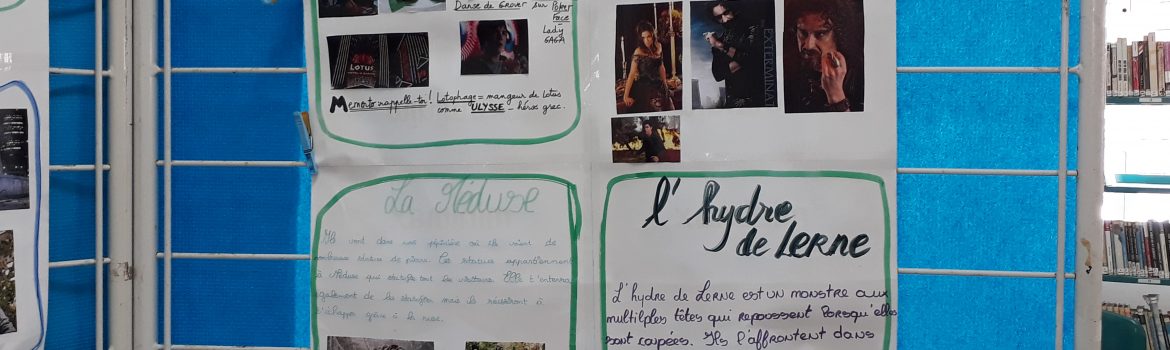 Danse de Grover sur Poker
Face
Lady
GAGA
LOTUS
Memento rappelle-toi! Lotophage = mangeur de lotus
comme ULYSSE - héros grec.
EXTERMINA
La Méduse
Ils vont dans une pépinière où ils voient de
nombreuses statues de pierre. Ces statues appartiennent
à Méduse qui statufie tout les visiteurs. Elle
également de les statufier mais ils réussiront à
s'échapper grâce à la ruse.
l'hydre
de LERNE
L'hydre de LERNE est un monstre aux
multilples têtes qui repoussent lorsqu'elles
sont coupées. Ils l'affrontent dans